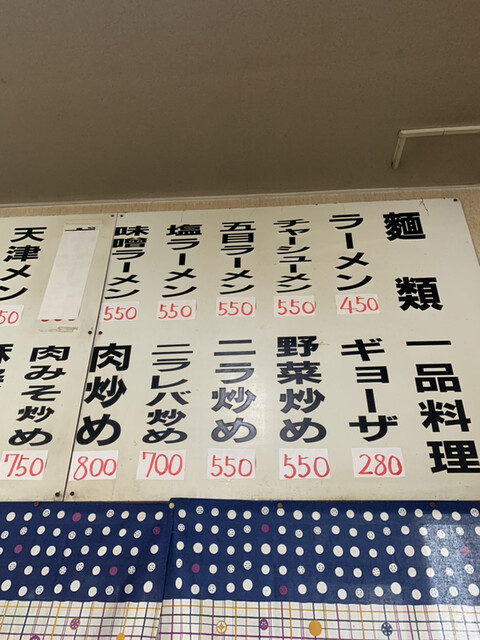 麺類
ラーメン
450
チャーシューメン
550
五目ラーメン
550
塩ラーメン
550
味噌ラーメン
550
天津メン
50
一品料理
ギョーザ
280
野菜炒め
550
ニラ炒め
550
ニラレバ炒め
700
肉炒め
800
肉みそ炒め
750